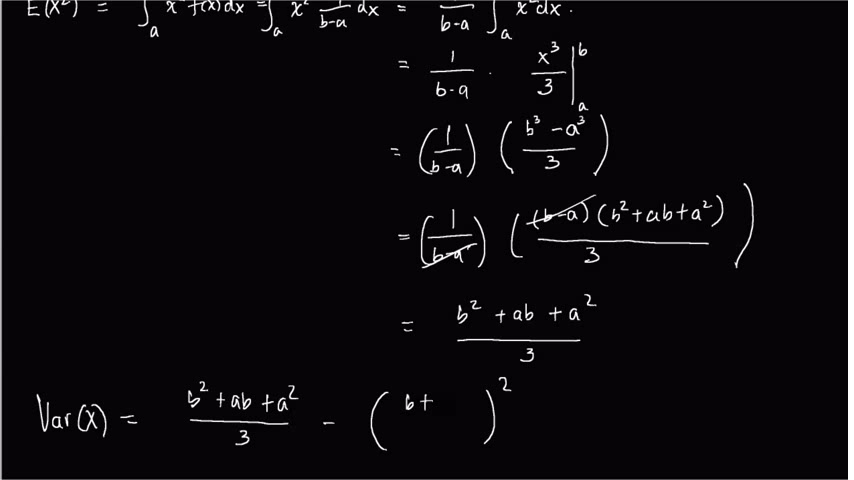 E(X²) = ∫ₐ x² f(x) dx = ∫ₐ x² 1/(b-a) dx = /(b-a) ∫ₐ x² dx.
= 1/(b-a) · x³/3 |ₐᵇ
= (1/(b-a)) ((b³ - a³)/3)
= (1/(b-a)) ((b-a)(b² + ab + a²)/3)
= (b² + ab + a²)/3
Var(X) = (b² + ab + a²)/3 - (b+ )²